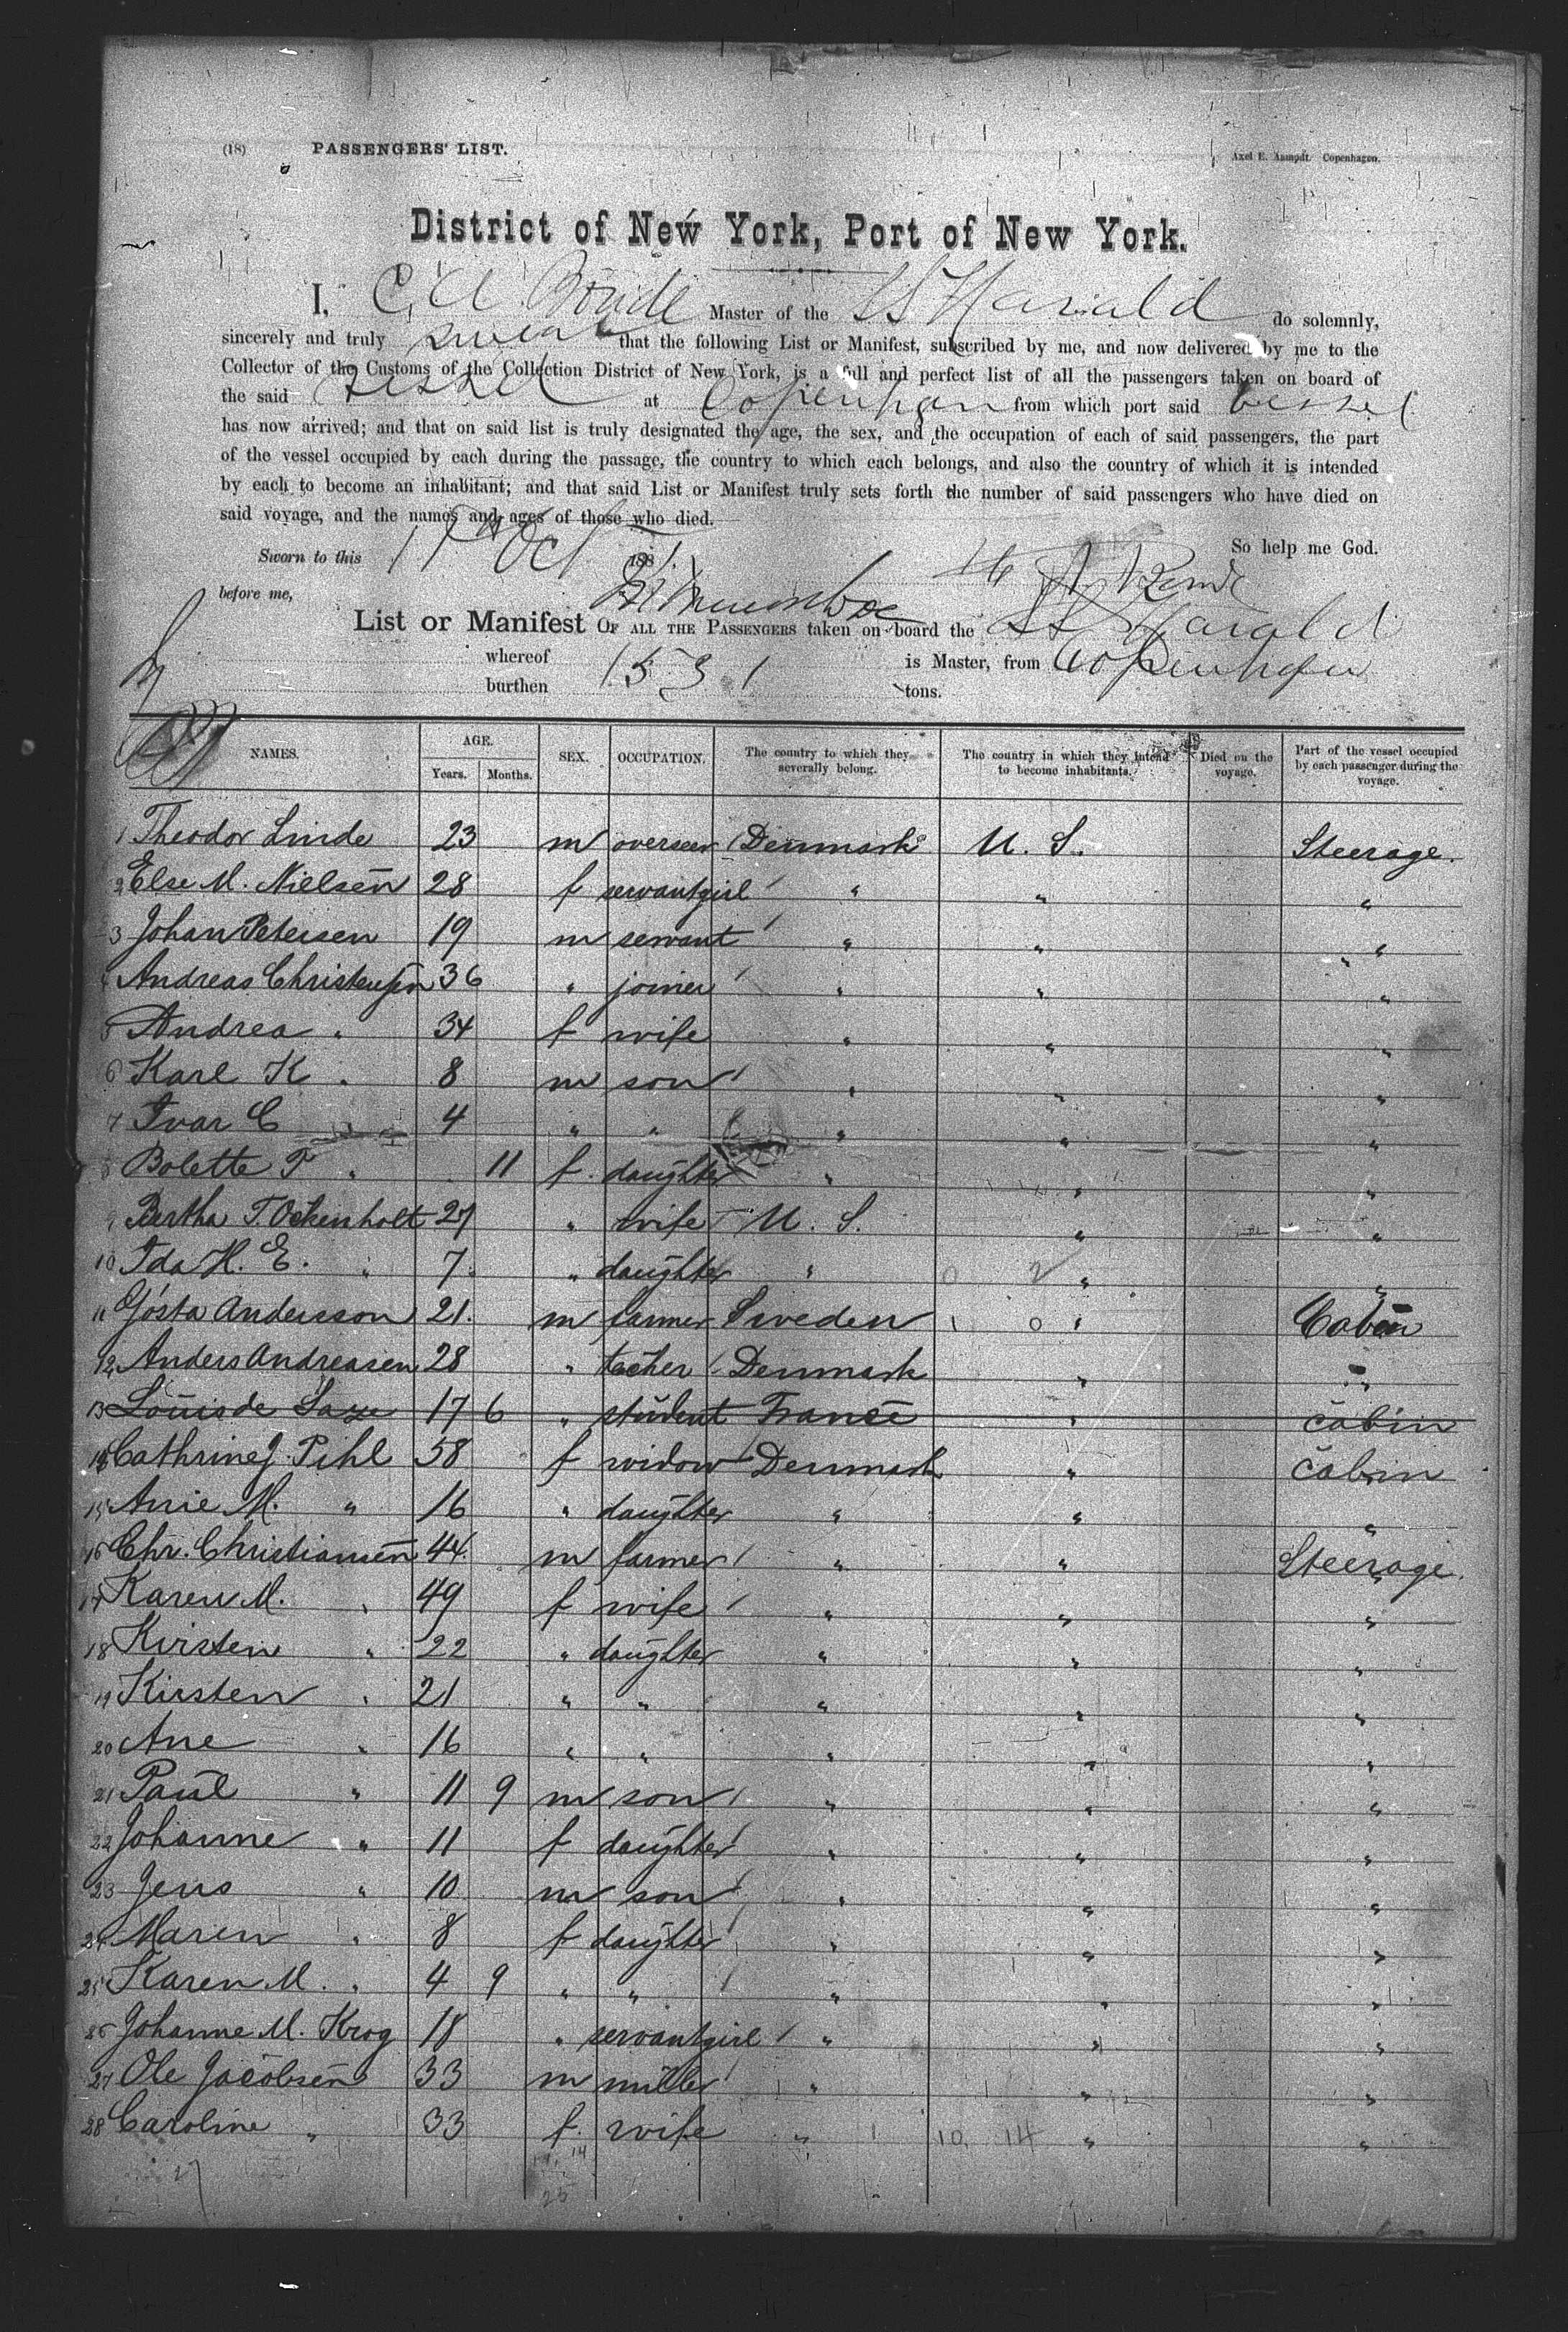 (18) PASSENGERS' LIST. Axel E. Aamodt. Copenhagen.
District of New York, Port of New York.
I, C. A. Master of the SS Harald do solemnly,
sincerely and truly swear that the following List or Manifest, subscribed by me, and now delivered by me to the
Collector of the Customs of the Collection District of New York, is a full and perfect list of all the passengers taken on board of
the said vessel at Copenhagen from which port said vessel
has now arrived; and that on said list is truly designated the age, the sex, and the occupation of each of said passengers, the part
of the vessel occupied by each during the passage, the country to which each belongs, and also the country of which it is intended
by each to become an inhabitant; and that said List or Manifest truly sets forth the number of said passengers who have died on
said voyage, and the names and ages of those who died.
So help me God.
Sworn to this 17 Oct 1881.
before me,
List or Manifest OF ALL THE PASSENGERS taken on board the SS Harald
whereof is Master, from Copenhagen
burthen 1531 tons.
NAMES. AGE. Years. Months. SEX. OCCUPATION. The country to which they severally belong. The country in which they intend to become inhabitants. Died on the voyage. Part of the vessel occupied by each passenger during the voyage.
1 Theodor Linde 23 m overseer Denmark U. S. Steerage.
2 Else M. Nielsen 28 f servantgirl " " "
3 Johan Petersen 19 m servant " " "
4 Andreas Christensen 36 " joiner " " "
5 Andrea " 34 f wife " " "
6 Karl K " 8 m son " " "
7 Ivar C " 4 " " " " "
8 Bolette P " 11 f. daughter " " "
9 Bertha T. Ockenholt 27 " wife U. S. " "
10 Ida H. E. " 7. " daughter " " "
11 Gösta Andersson 21. m farmer Sweden " Cabin
12 Anders Andreasen 28 " teacher Denmark " "
13 Louis de Saze 17 6 " student France " cabin
14 Cathrine J. Pihl 58 f widow Denmark " cabin
15 Anie M. " 16 " daughter " " "
16 Chr. Christiansen 44. m farmer " " Steerage.
17 Karen M. " 49 f wife " " "
18 Kirsten " 22 " daughter " " "
19 Kirsten " 21 " " " " "
20 Ane " 16 " " " " "
21 Paul " 11 9 m son " " "
22 Johanne " 11 f daughter " " "
23 Jens " 10 m son " " "
24 Maren " 8 f daughter " " "
25 Karen M. " 4 9 " " " " "
26 Johanne M. Krog 18 " servantgirl " " "
27 Ole Jacobsen 33 m miller " " "
28 Caroline " 33 f. wife " 10 14 " "
27 14
25